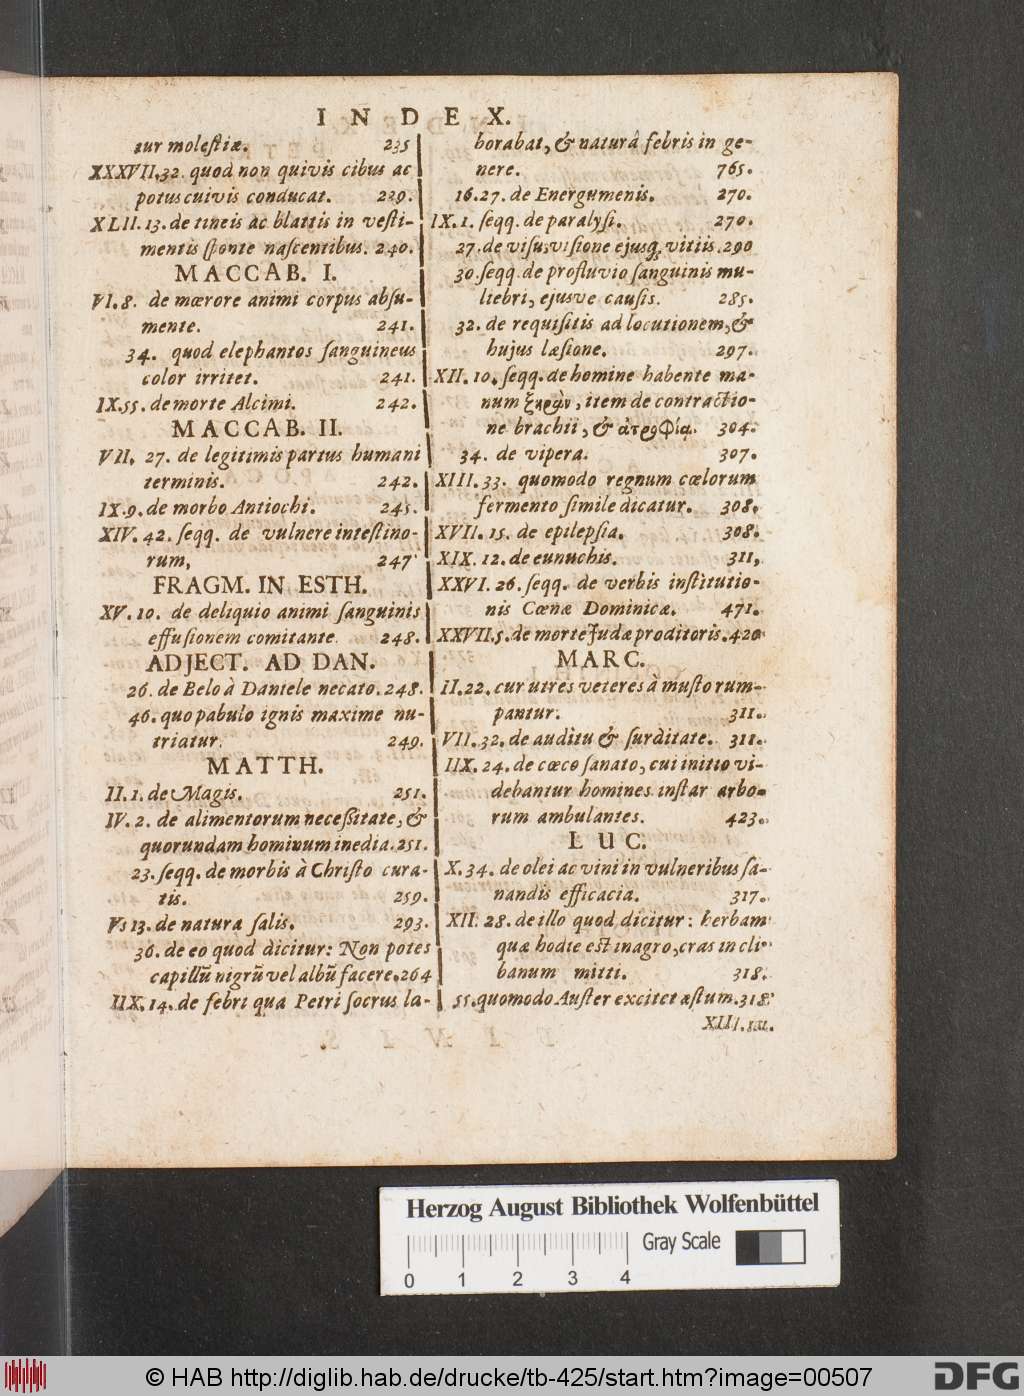 INDEX.
tur molestiæ. 235
XXXVII.32. quod non quivis cibus ac
potus cuivis conducat. 239.
XLII. 13. de tineis ac blattis in vesti-
mentis sponte nascentibus. 240.
MACCAB. I.
VI. 8. de mœrore animi corpus absu-
mente. 241.
34. quod elephantos sanguineus
color irritet. 241.
IX.55. de morte Alcimi. 242.
MACCAB. II.
VII. 27. de legitimis partus humani
terminis. 242.
IX.9. de morbo Antiochi. 245.
XIV. 42. seqq. de vulnere intestino-
rum, 247
FRAGM. IN ESTH.
XV. 10. de deliquio animi sanguinis
effusionem comitante 248.
ADJECT. AD DAN.
26. de Belo à Daniele necato. 248.
46. quo pabulo ignis maxime nu-
triatur. 249.
MATTH.
II. 1. de Magis. 251.
IV. 2. de alimentorum necessitate, &
quorundam hominum inedia. 251.
23. seqq. de morbis à Christo cura-
tis. 259.
13. de natura salis. 293.
36. de eo quod dicitur: Non potes
capillũ nigrũ vel albũ facere. 264
IIX. 14. de febri qua Petri socrus la-
borabat, & naturâ febris in ge-
nere. 765.
16.27. de Energumenis. 270.
IX. 1. seqq. de paralysi. 270.
27. de visu, visione ejusq; vitiis. 290
30. seqq. de profluvio sanguinis mu-
liebri, ejusve causis. 285.
32. de requisitis ad locutionem, &
hujus læsione. 297.
XII. 10. seqq. de homine habente ma-
num ξηρὰν, item de contractio-
ne brachii, & ἀτροφίᾳ. 304.
34. de vipera. 307.
XIII. 33. quomodo regnum cœlorum
fermento simile dicatur. 308.
XVII. 15. de epilepsia. 308.
XIX. 12. de eunuchis. 311,
XXVI. 26. seqq. de verbis institutio-
nis Cœnæ Dominicæ. 471.
XXVII.5. de morte Judæ proditoris. 420
MARC.
II.22. cur utres veteres à musto rum-
pantur. 311.
VII. 32. de auditu & surditate. 311.
IIX. 24. de cœco sanato, cui initio vi-
debantur homines instar arbo-
rum ambulantes. 423.
LUC.
X. 34. de olei ac vini in vulneribus sa-
nandis efficacia. 317.
XII. 28. de illo quod dicitur: herbam
quæ hodie est in agro, cras in cli-
banum mitti. 318.
55. quomodo Auster excitet æstum. 318.
XIII. III.
Herzog August Bibliothek Wolfenbüttel
Gray Scale
0 1 2 3 4
© HAB http://diglib.hab.de/drucke/tb-425/start.htm?image=00507
DFG